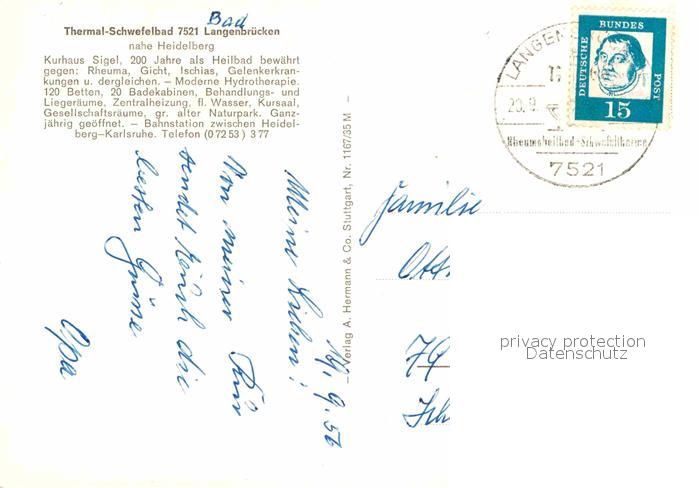 Bad
Thermal-Schwefelbad 7521 Langenbrücken
nahe Heidelberg
Kurhaus Sigel, 200 Jahre als Heilbad bewährt
gegen: Rheuma, Gicht, Ischias, Gelenkerkran-
kungen u. dergleichen. – Moderne Hydrotherapie.
120 Betten, 20 Badekabinen, Behandlungs- und
Liegeräume, Zentralheizung, fl. Wasser, Kursaal,
Gesellschaftsräume, gr. alter Naturpark. Ganz-
jährig geöffnet. – Bahnstation zwischen Heidel-
berg–Karlsruhe. Telefon (0 72 53) 3 77
Meine Lieben!
Von meiner Kur
sendet Euch die
besten Grüsse
Opa
– Verlag A. Hermann & Co. Stuttgart, Nr. 1167/35 M –
Familie
Ott
79
privacy protection
Datenschutz
LANGEN
20.9
Rheumaheilbad-Schwefeltherme
7521
DEUTSCHE BUNDES POST
15